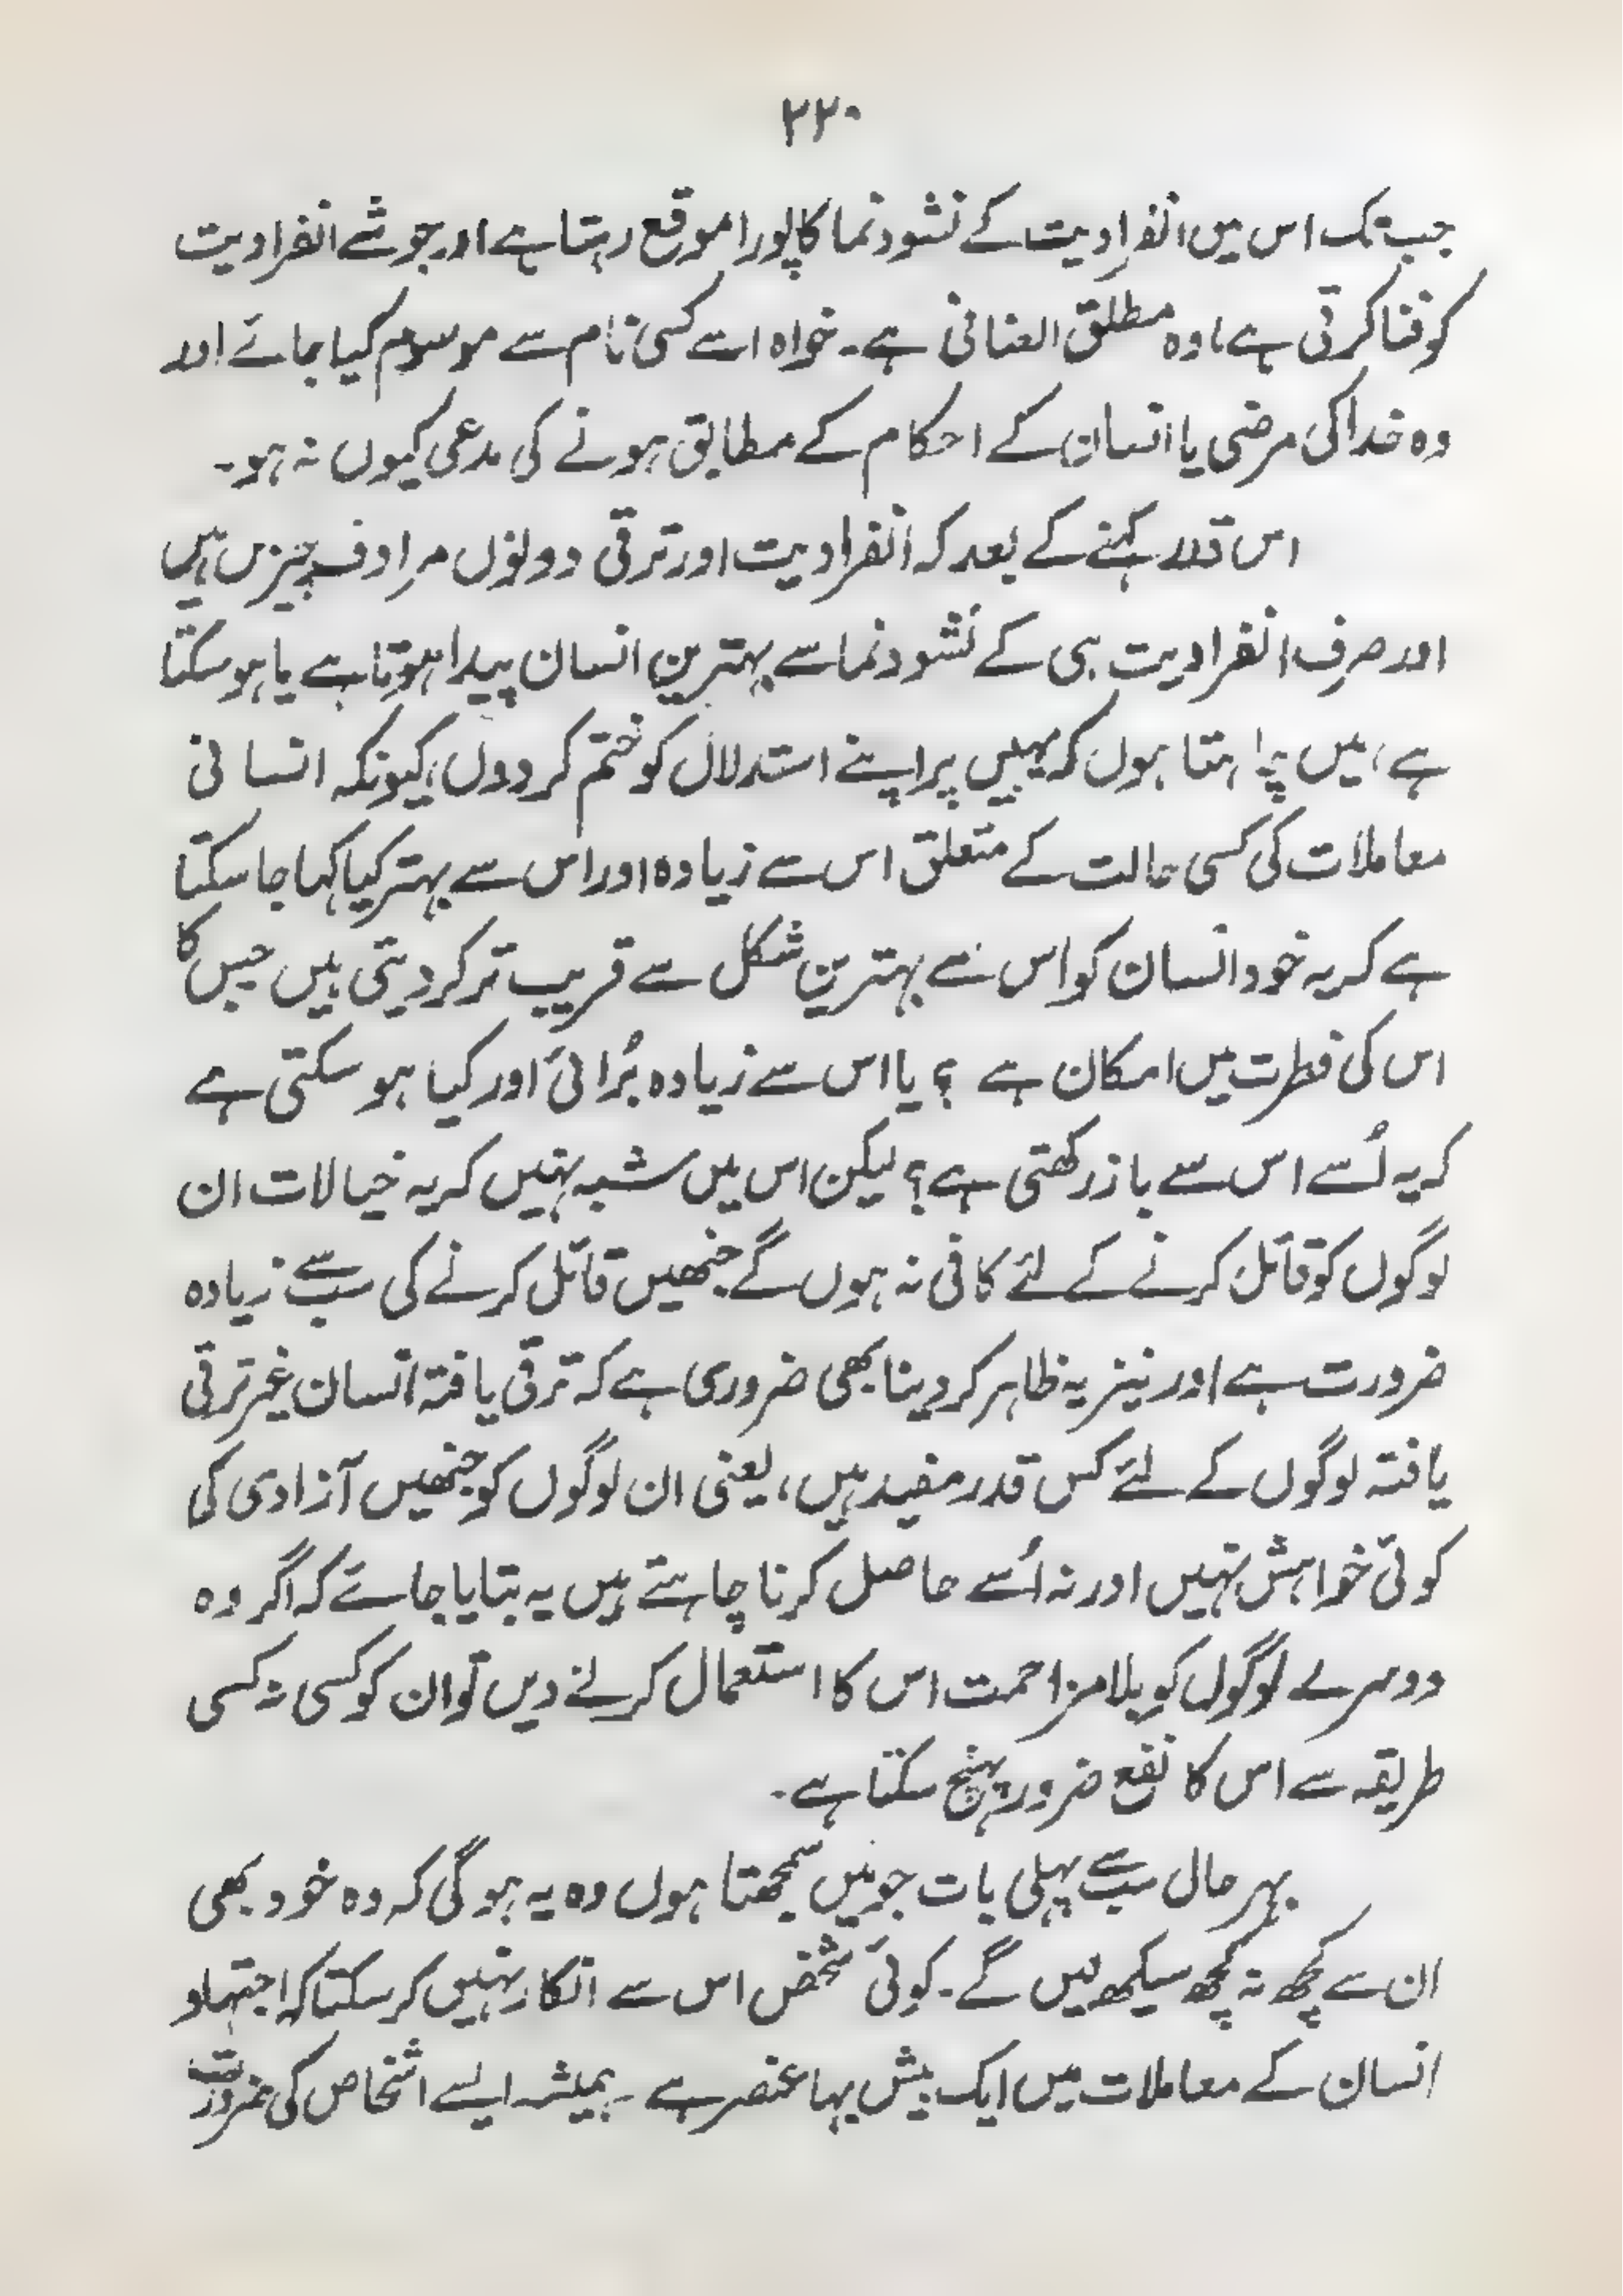 ۲۲۰
جب تک اس میں انفرادیت کے نشوونما کا پورا موقع رہتا ہے اور جو شے انفرادیت
کو فنا کرتی ہے، وہ مطلق العنانی ہے۔ خواہ اسے کسی نام سے موسوم کیا جائے اور
وہ خدا کی مرضی یا انسان کے احکام کے مطابق ہونے کی مدعی کیوں نہ ہو۔
اس قدر کہنے کے بعد کہ انفرادیت اور ترقی دونوں مرادف چیزیں ہیں
اور صرف انفرادیت ہی کے نشوونما سے بہترین انسان پیدا ہوتا ہے یا ہو سکتا
ہے، میں چاہتا ہوں کہ یہیں پر اپنے استدلال کو ختم کر دوں، کیونکہ انسانی
معاملات کی کسی حالت کے متعلق اس سے زیادہ اور اس سے بہتر کیا کہا جا سکتا
ہے کہ یہ خود انسان کو اس سے بہترین شکل سے قریب تر کر دیتی ہیں جس کا
اس کی فطرت میں امکان ہے ؟ یا اس سے زیادہ بُرائی اور کیا ہو سکتی ہے
کہ یہ اُسے اس سے باز رکھتی ہے؟ لیکن اس میں شبہ نہیں کہ یہ خیالات ان
لوگوں کو قائل کرنے کے لئے کافی نہ ہوں گے جنھیں قائل کرنے کی سب سے زیادہ
ضرورت ہے اور نیز یہ ظاہر کر دینا بھی ضروری ہے کہ ترقی یافتہ انسان غیر ترقی
یافتہ لوگوں کے لئے کس قدر مفید ہیں، یعنی ان لوگوں کو جنھیں آزادی کی
کوئی خواہش نہیں اور نہ اُسے حاصل کرنا چاہتے ہیں یہ بتایا جائے کہ اگر وہ
دوسرے لوگوں کو بلا مزاحمت اس کا استعمال کرنے دیں تو ان کو کسی نہ کسی
طریقہ سے اس کا نفع ضرور پہنچ سکتا ہے۔
بہر حال سب سے پہلی بات جو میں سمجھتا ہوں وہ یہ ہو گی کہ وہ خود بھی
ان سے کچھ نہ کچھ سیکھ لیں گے۔ کوئی شخص اس سے انکار نہیں کر سکتا کہ اجتہاد
انسان کے معاملات میں ایک بیش بہا عنصر ہے ۔ ہمیشہ ایسے اشخاص کی ضرورت